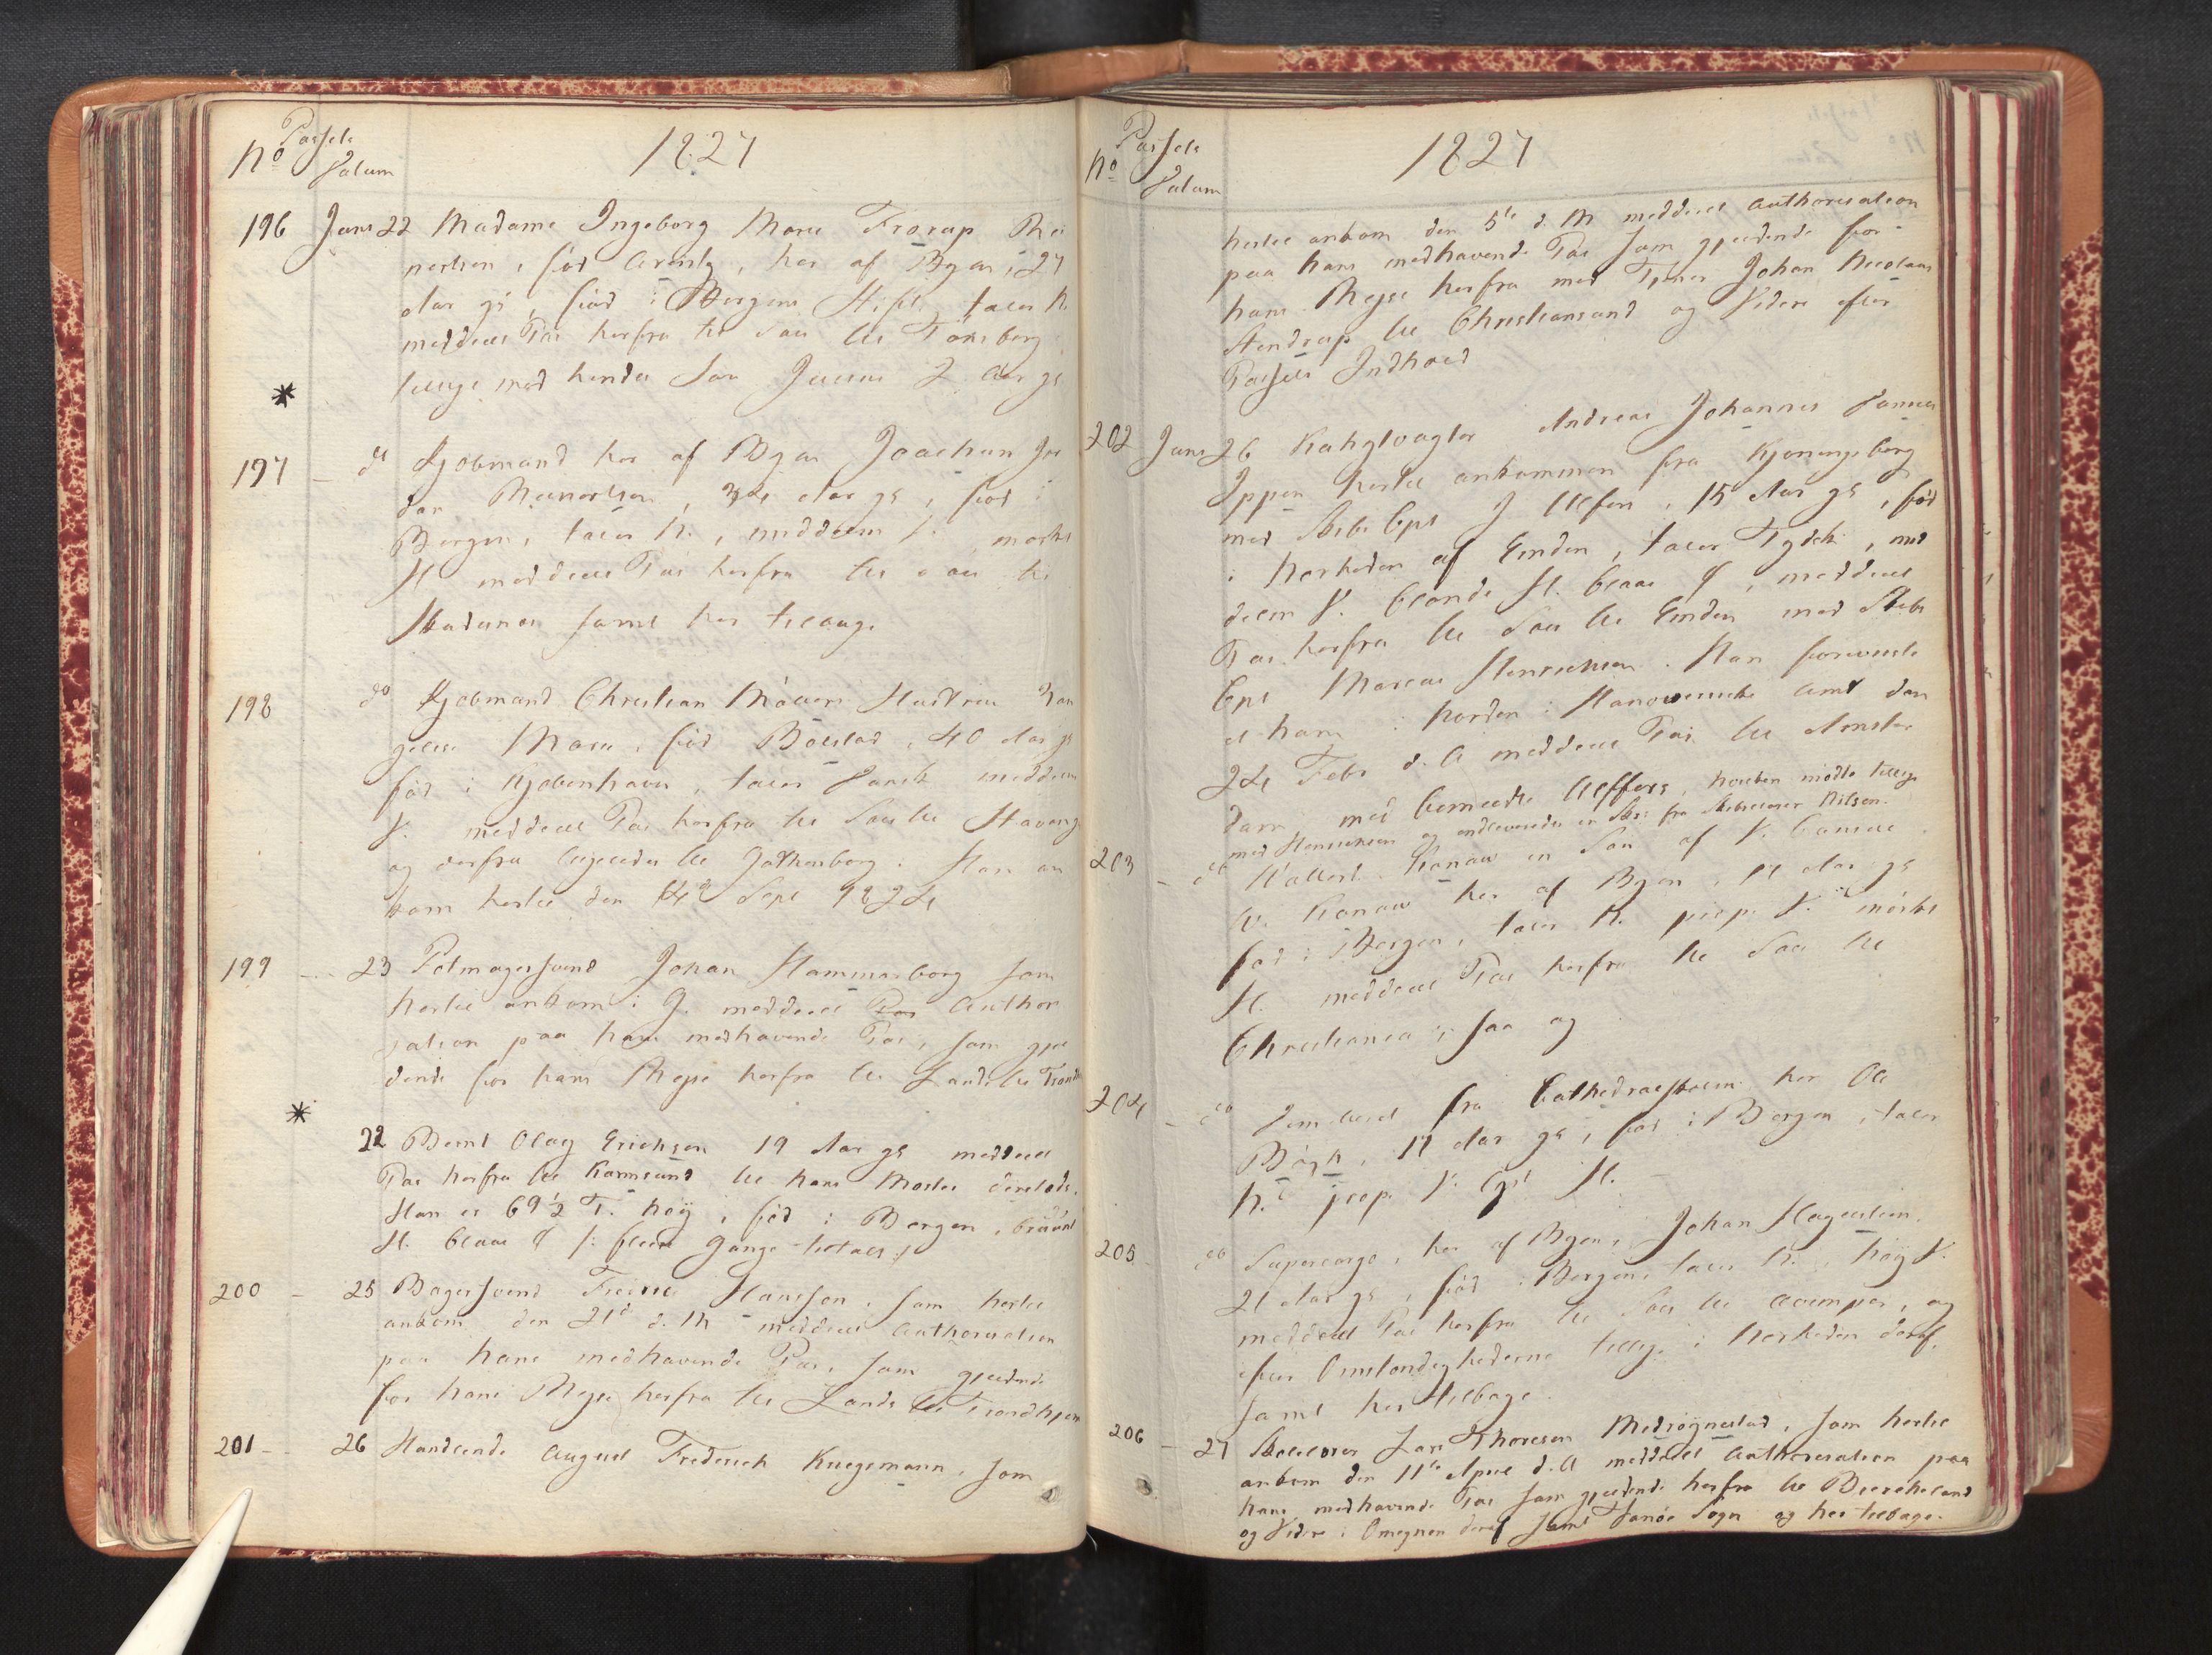 No Passets Datum 1827
196 Juni 22 Madame Ingeborg Marie Frorup Mei
nertsen, fød , her af Byen, 27
Aar gl, fød i Bergens Stift, taler N.
meddeelt Pas herfra til Søes til Tönsberg
tillige med hendes Søn 2 Aar gl
*
197 — do Kjøbmand her af Byen Joachim
Meinertsen, 34 Aar gl, fød i
Bergen, taler N., middelm V. mørkt
H. meddeelt Pas herfra til Søes til
Stavanger samt her tilbage
198 do Kjøbmand Christian Möllers Hustrue
Marie, fød Bölstad, 40 Aar gl
fød i Kjøbenhavn, taler Dansk middelm
V. meddeelt Pas herfra til Søes til Stavanger
og derfra ligeledes til Gothenborg. Han an
kom hertil den Sept 1824
199 — 23 Potmagersvend Johan Hammerborg som
hertil ankom i G. meddeelt Pas Authori
sation paa hans medhavende Pas, som gjel
dende for hans Rejse herfra til Lands til Trondh
*
22 Bernt Olay Erichsen 19 Aar gl meddeelt
Pas herfra til Karmsund til hans Moster
Han er 69½ T. høj, fød i Bergen, bruunt
H. blaae Ø /: flere Gange tiltalt :/
200 — 25 Bagersvend Hansson, som hertil
ankom den 21d d. M meddeelt Authorisation
paa hans medhavende Pas, som gjeldende
for hans Rejse herfra til Lands til Trondhjem
201 — 26 Handlende August Frederich Kriegsmann, som
No Passets Datum 1827
hertil ankom den 5te d. M meddeelt Authorisation
paa hans medhavende Pas som gjeldende for
hans Rejse herfra med Tjener Johan Nicolaus
Stendrup til Christiansand og Videre efter
Passets Indhold
202 Juni 26 Kahytvagter Andreas Johannes Jansen
Ippen hertil ankommen fra Kjøningsberg
med Skibs Cpt J Ulfers, 15 Aar gl, fød
i Nærheden af Emden, taler Tydsk, mid
delm V. blonde H. blaae Ø, meddeelt
Pas herfra til Søes til Emden med Skibs
Cpt Marcus Henrichsen. Han foreviste
et ham i Norden i Hanoverske Amt den
24 Febr d. A meddeelt Pas til Amster
dam med bemeldte Ulffers, hvilken mødte tillige
med Henrichsen og indleverede en Skr. fra Skibsclarer Nilson.
203 — do Wollert Konow en Søn af V. Consul
W. Konow her af Byen, 14 Aar gl
fød i Bergen, taler N. prop. V. mörkt
H. meddeelt Pas herfra til Søes til
Christiania, saa og
204 — do Dimitteret fra Cathedralskolen her Ole
Bögh, 17 Aar gl, fød i Bergen, taler
N. prop. V. lyst H.
205 — do Supercargo, her af Byen, Johan Hagelsteen,
21 Aar gl, fød i Bergen, taler N., høj V.
meddeelt Pas herfra til Søes til , og
efter Omstændighederne tillige i Nærheden deraf,
samt her tilbage
206 — 27 Skolelærer Lars Thoresen Medröjnestad, som hertil
ankom den 11te April d. A meddeelt Authorisation paa
hans medhavende Pas som gjeldende herfra til
og Videre i Omegnen deraf samt Fanøe Sogn og her tilbage.